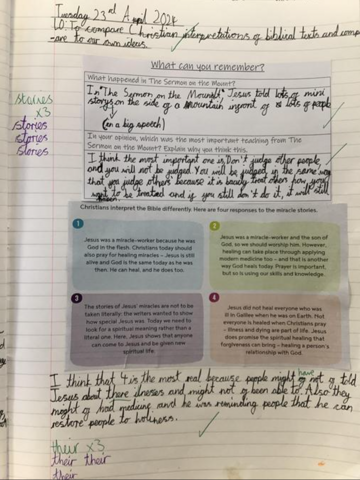 Tuesday 23rd April 2024
LO: To compare Christian interpretations of biblical texts and comp
-are to our own ideas.
What can you remember?
What happened in The Sermon on the Mount?
In "The Sermon on the Mount", Jesus told lots of mini
storys on the side of a mountain infront of lots of people
(in a big speech)
stories
x3
stories
stories
stories
In your opinion, which was the most important teaching from The
Sermon on the Mount? Explain why you think this.
I think the most important one is, Don't judge other people,
and you will not be judged. You will be judged in the same way
that you judge others because it is treat others how you
want to be treated and if you still don't do it, it will still
Christians interpret the Bible differently. Here are four responses to the miracle stories.
1
Jesus was a miracle-worker because he was
God in the flesh. Christians today should
also pray for healing miracles – Jesus is still
alive and God is the same today as he was
then. He can heal, and he does too.
2
Jesus was a miracle-worker and the son of
God, so we should worship him. However,
healing can take place through applying
modern medicine too – and that is another
way God heals today. Prayer is important,
but so is using our skills and knowledge.
3
The stories of Jesus' miracles are not to be
taken literally: the writers wanted to show
how special Jesus was. Today we need to
look for a spiritual meaning rather than a
literal one. Here, Jesus shows that anyone
can come to Jesus and be given new
spiritual life.
4
Jesus did not heal everyone who was
ill in Galilee when he was on Earth. Not
everyone is healed when Christians pray
– illness and dying are part of life. Jesus
does promise the spiritual healing that
forgiveness can bring – healing a person's
relationship with God.
I think that 4 is the most real because people might have not of told
Jesus about there illneses and might not of been able to. Also they
might of had medicine and he was reminding people that he can
restore people to holiness.
their x3
their their
their